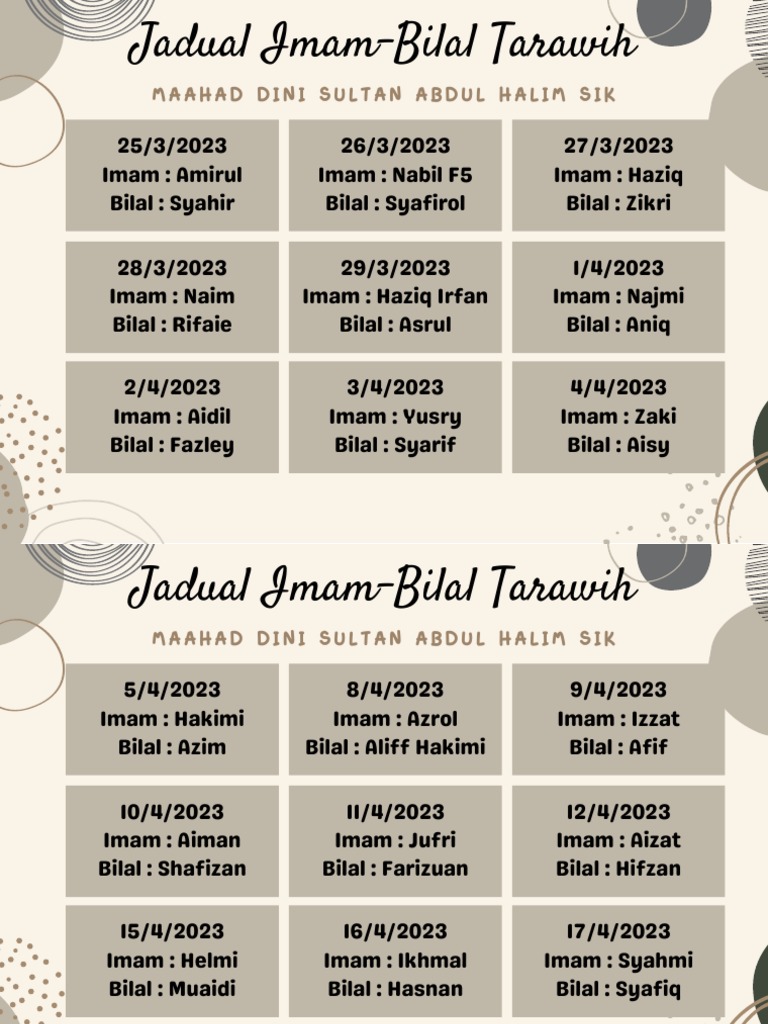 Jadual Imam-Bilal Tarawih
MAAHAD DINI SULTAN ABDUL HALIM SIK
25/3/2023
Imam : Amirul
Bilal : Syahir
26/3/2023
Imam : Nabil F5
Bilal : Syafirol
27/3/2023
Imam : Haziq
Bilal : Zikri
28/3/2023
Imam : Naim
Bilal : Rifaie
29/3/2023
Imam : Haziq Irfan
Bilal : Asrul
1/4/2023
Imam : Najmi
Bilal : Aniq
2/4/2023
Imam : Aidil
Bilal : Fazley
3/4/2023
Imam : Yusry
Bilal : Syarif
4/4/2023
Imam : Zaki
Bilal : Aisy
Jadual Imam-Bilal Tarawih
MAAHAD DINI SULTAN ABDUL HALIM SIK
5/4/2023
Imam : Hakimi
Bilal : Azim
8/4/2023
Imam : Azrol
Bilal : Aliff Hakimi
9/4/2023
Imam : Izzat
Bilal : Afif
10/4/2023
Imam : Aiman
Bilal : Shafizan
11/4/2023
Imam : Jufri
Bilal : Farizuan
12/4/2023
Imam : Aizat
Bilal : Hifzan
15/4/2023
Imam : Helmi
Bilal : Muaidi
16/4/2023
Imam : Ikhmal
Bilal : Hasnan
17/4/2023
Imam : Syahmi
Bilal : Syafiq